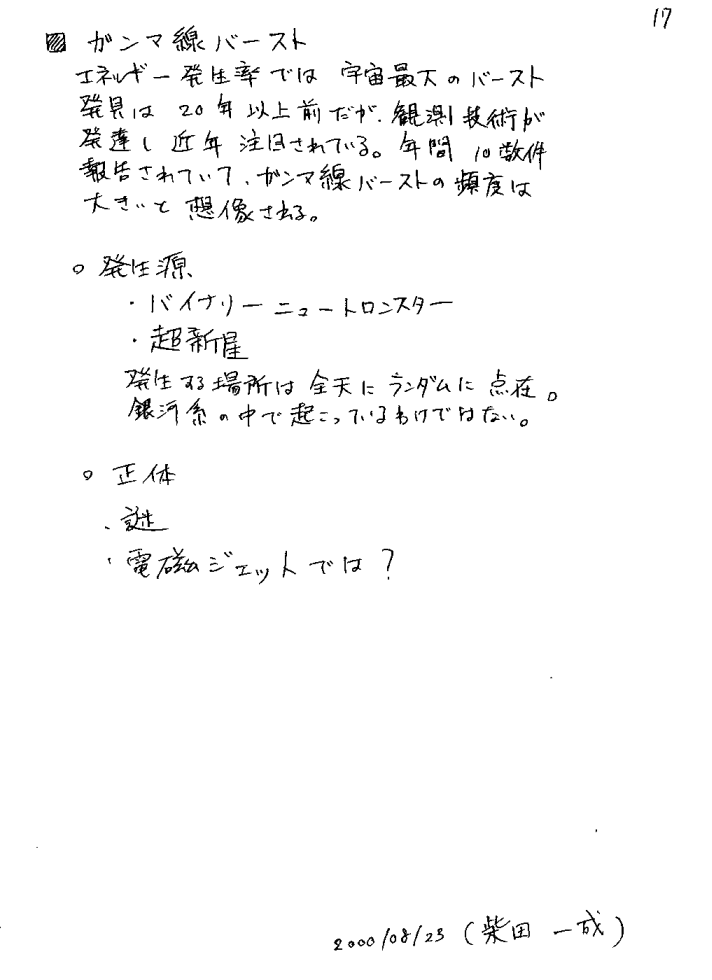 17
▨ ガンマ線バースト
エネルギー発生率では 宇宙最大のバースト
発見は 20年以上前だが、観測技術が
発達し 近年 注目されている。年間 10数件
報告されていて、ガンマ線バーストの頻度は
大きいと 想像される。
○ 発生源
・バイナリーニュートロンスター
・超新星
発生する場所は 全天に ランダムに 点在。
銀河系の中で起こっているわけではない。
○ 正体
・謎
・電磁ジェットでは?
2000/08/23 (柴田 一成)